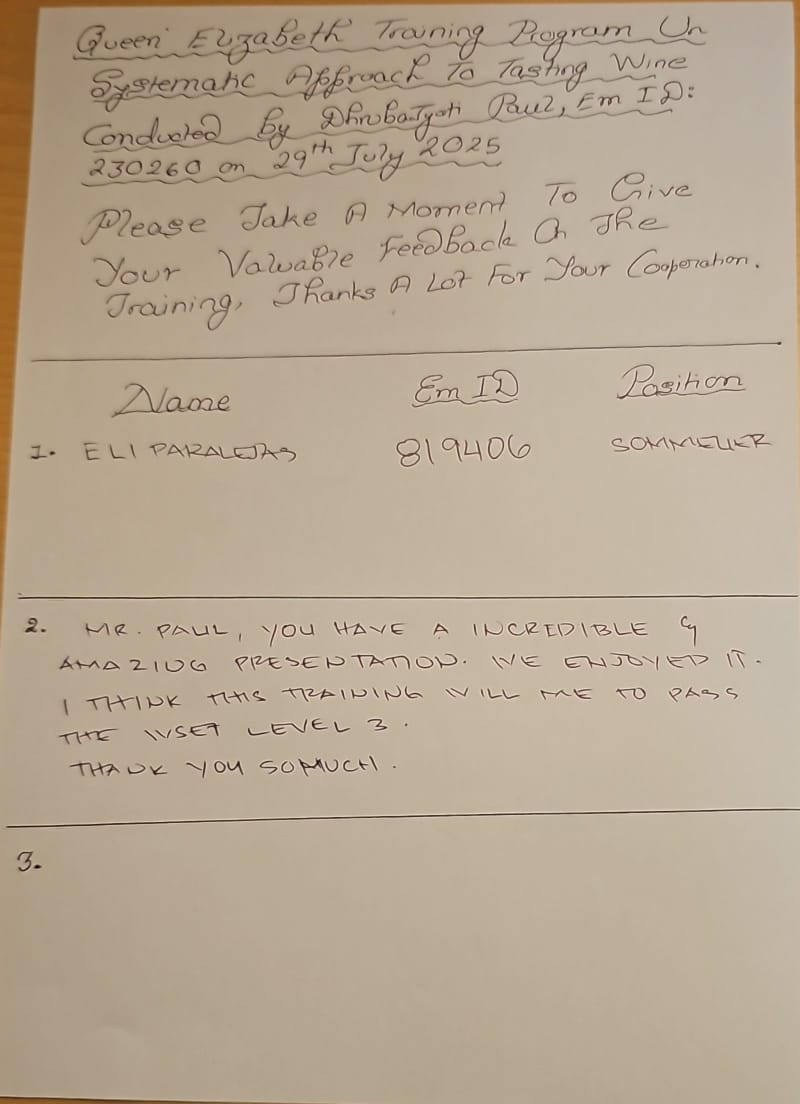 Queen Elizabeth Training Program On
Systematic Approach To Tasting Wine
Conducted By Dhrubajyoti Paul, Em ID:
230260 on 29th July 2025
Please Take A Moment To Give
Your Valuable Feedback On The
Training, Thanks A Lot For Your Cooperation.
Name Em ID Position
1. ELI PARALEJAS 819406 SOMMELIER
2. MR. PAUL, YOU HAVE A INCREDIBLE &
AMAZING PRESENTATION. WE ENJOYED IT.
I THINK THIS TRAINING WILL ME TO PASS
THE WSET LEVEL 3.
THANK YOU SOMUCH.
3.